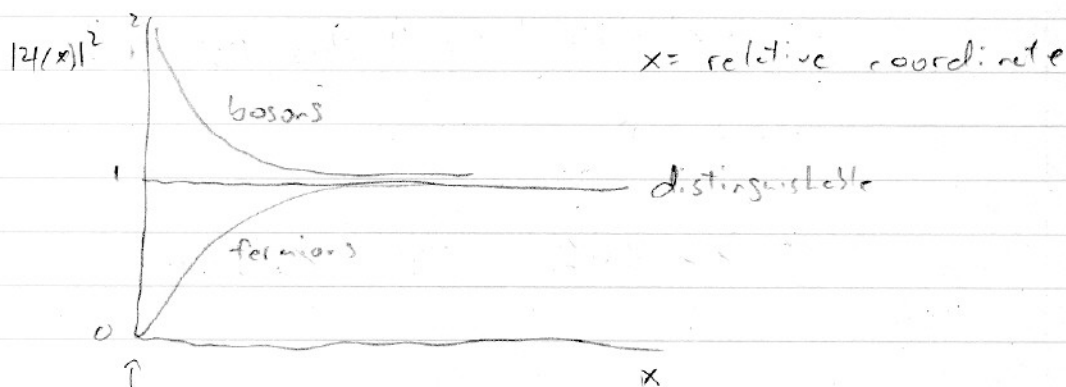 2
|ψ(x)|² x = relative coordinate
bosons
1 distinguishable
fermions
0
↑ x